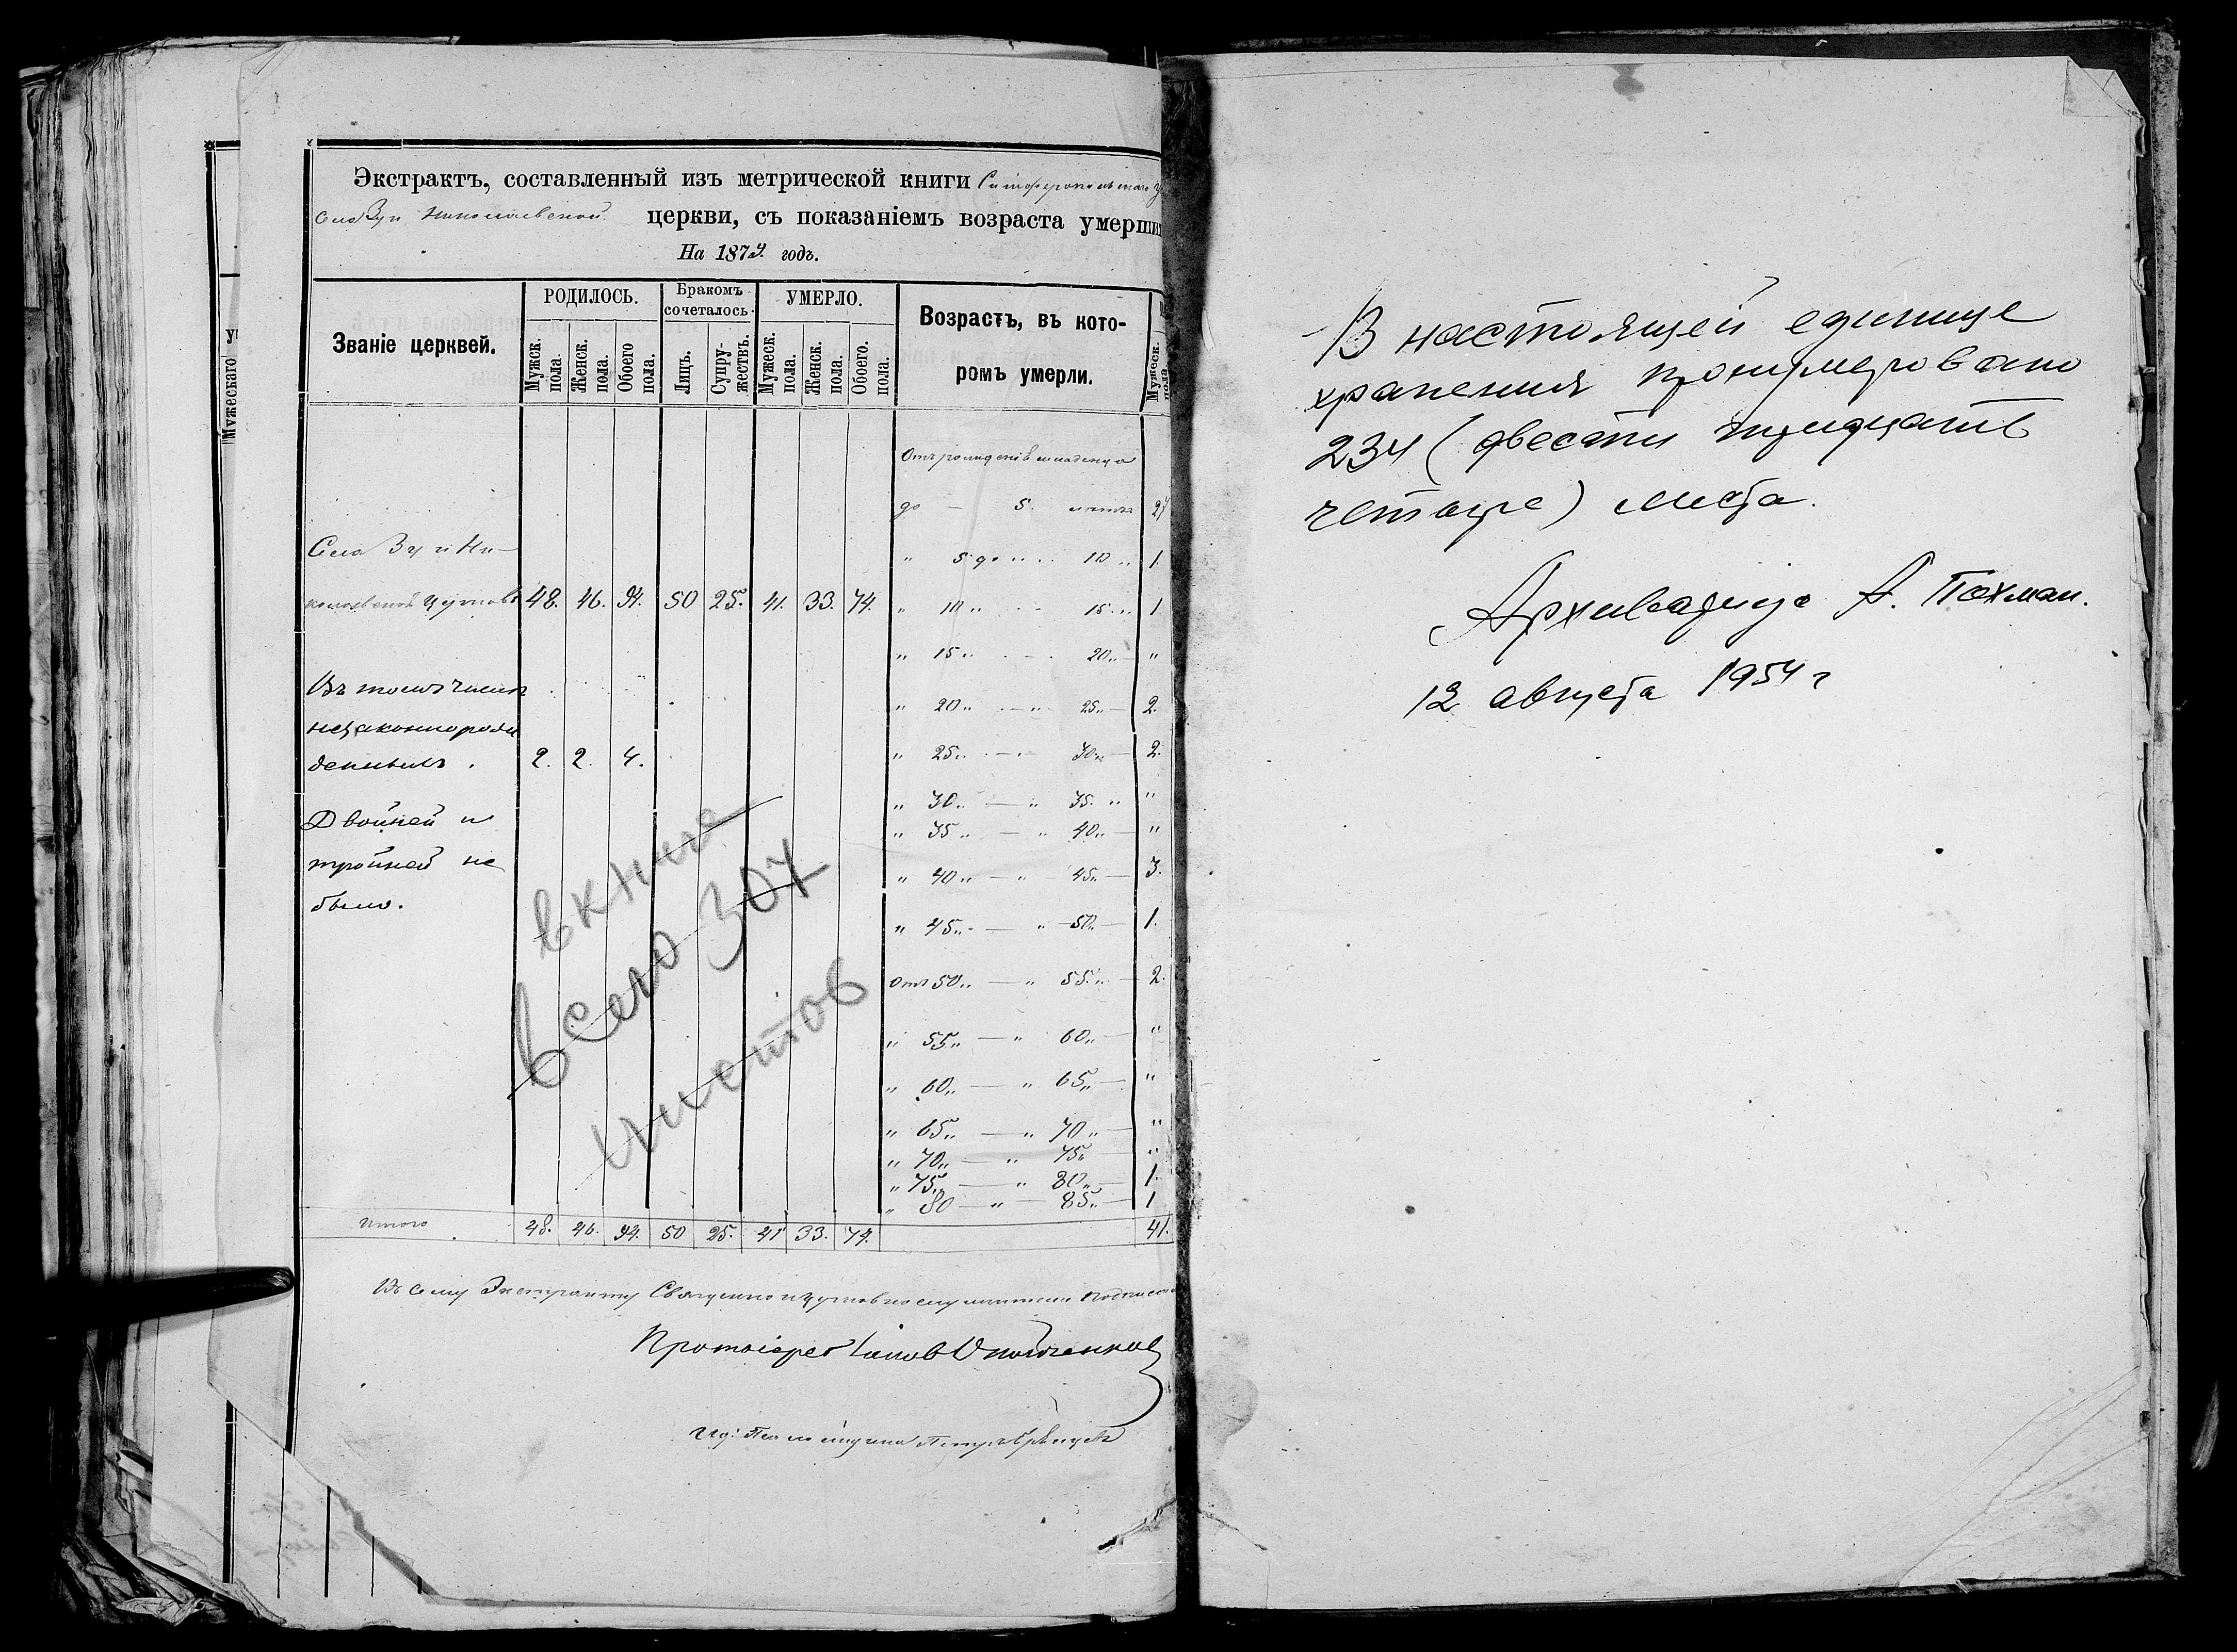 Экстрактъ, составленный изъ метрической книги Симферопольскаго
села Зуи Николаевской церкви, съ показаніемъ возраста умерши
На 1874 годъ.
Званіе церквей.
РОДИЛОСЬ.
Мужск. пола.
Женск. пола.
Обоего пола.
Бракомъ сочеталось.
Лицъ.
Супружествъ.
УМЕРЛО.
Мужеск. пола.
Женск. пола.
Обоего. пола.
Возрастъ, въ которомъ умерли.
Мужеск. пола
Мужескаго
Отъ рожденія младенца
до — 5. лѣтъ 27
„ 5 до „ 10 „ 1.
Села Зуи Ни-
колаевской церкви 48. 46. 94. 50 25. 41. 33. 74. „ 10 „ 15 „ 1.
„ 15 „ 20 „ — „
Въ томъ числѣ
„ 20 „ — „ 25 „ — 2.
незаконнорож
денныхъ . 2. 2. 4. „ 25 „ — „ 30 „ — 2.
„ 30 „ — „ 35 „ „
Двойней и „ 35 „ — „ 40 „ — „
тройней не „ 40 „ — „ 45 „ — 3.
было.
„ 45 „ — „ 50 „ — 1.
Отъ 50 „ — „ 55 „ — 2.
„ 55 „ — „ 60 „ — „
„ 60 „ — „ 65 „ — „
„ 65 „ — „ 70 „ — „
„ 70 „ — „ 75 „ — „
„ 75 „ — „ 80 „ — 1.
„ 80 — „ — 85 „ — 1
в книге
всего 304
листов
Итого 48. 46. 94. 50 25. 41 33. 74. 41.
Къ сему Экстракту Священно и церковно служители подписа
Протоіерей Іаковъ
Псаломщика Петръ
В настоящей единице
хранения пронумеровано
234 (двести тридцать
четыре) листа.
Архивариус А. Похман.
12 августа 1954 г